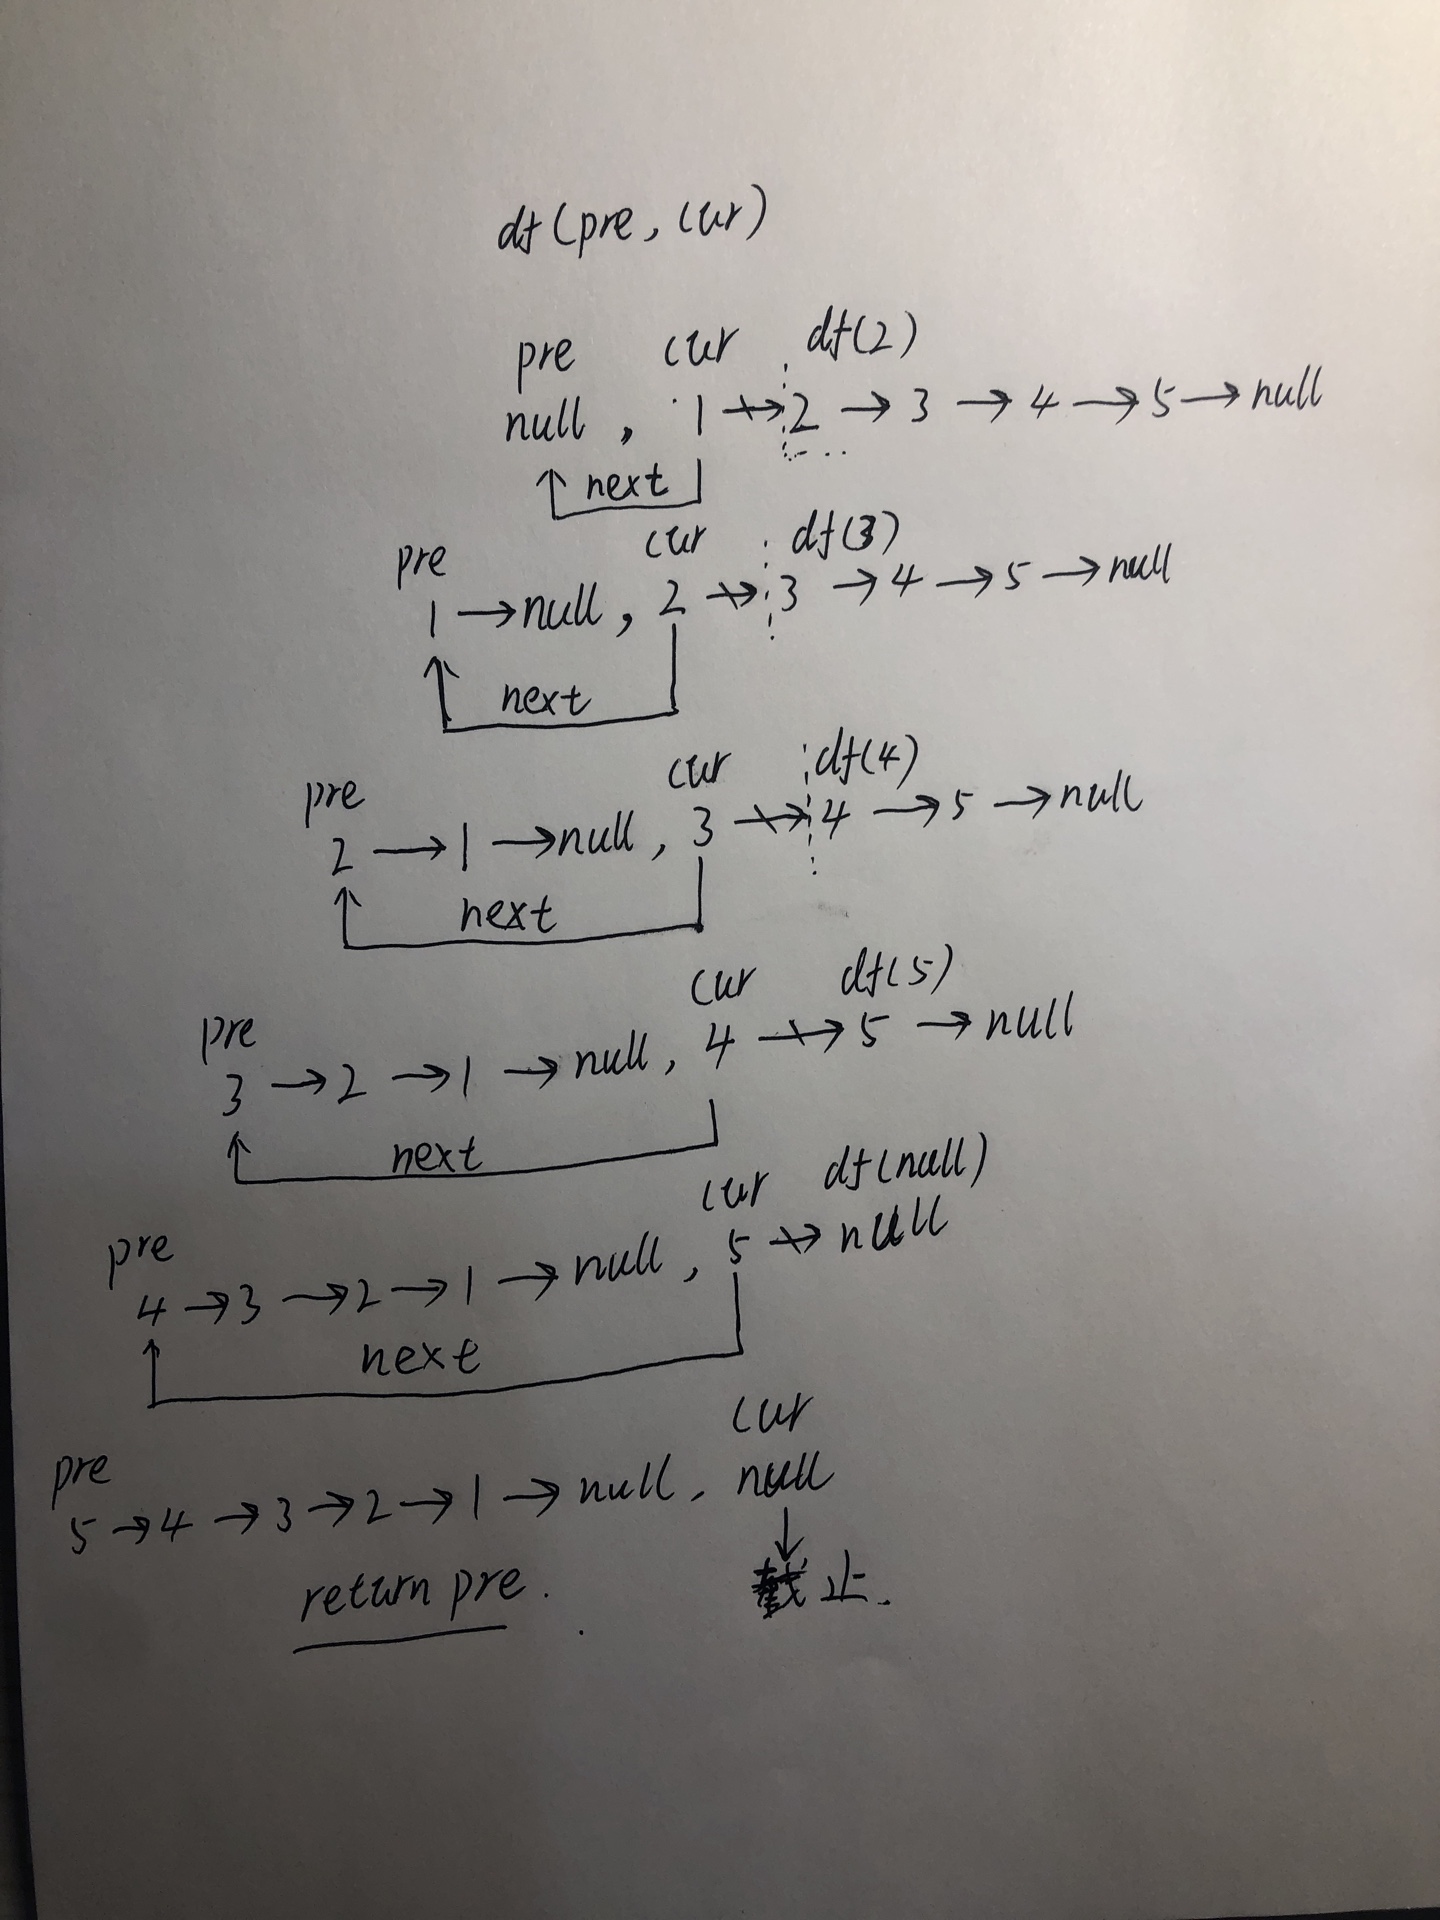 df(pre, cur)
pre cur df(2)
null , 1 → 2 → 3 → 4 → 5 → null
next
pre cur df(3)
1 → null , 2 → 3 → 4 → 5 → null
next
pre cur df(4)
2 → 1 → null , 3 → 4 → 5 → null
next
pre cur df(5)
3 → 2 → 1 → null , 4 → 5 → null
next
pre cur df(null)
4 → 3 → 2 → 1 → null , 5 → null
next
pre cur
5 → 4 → 3 → 2 → 1 → null . null
↓
return pre . 截止.